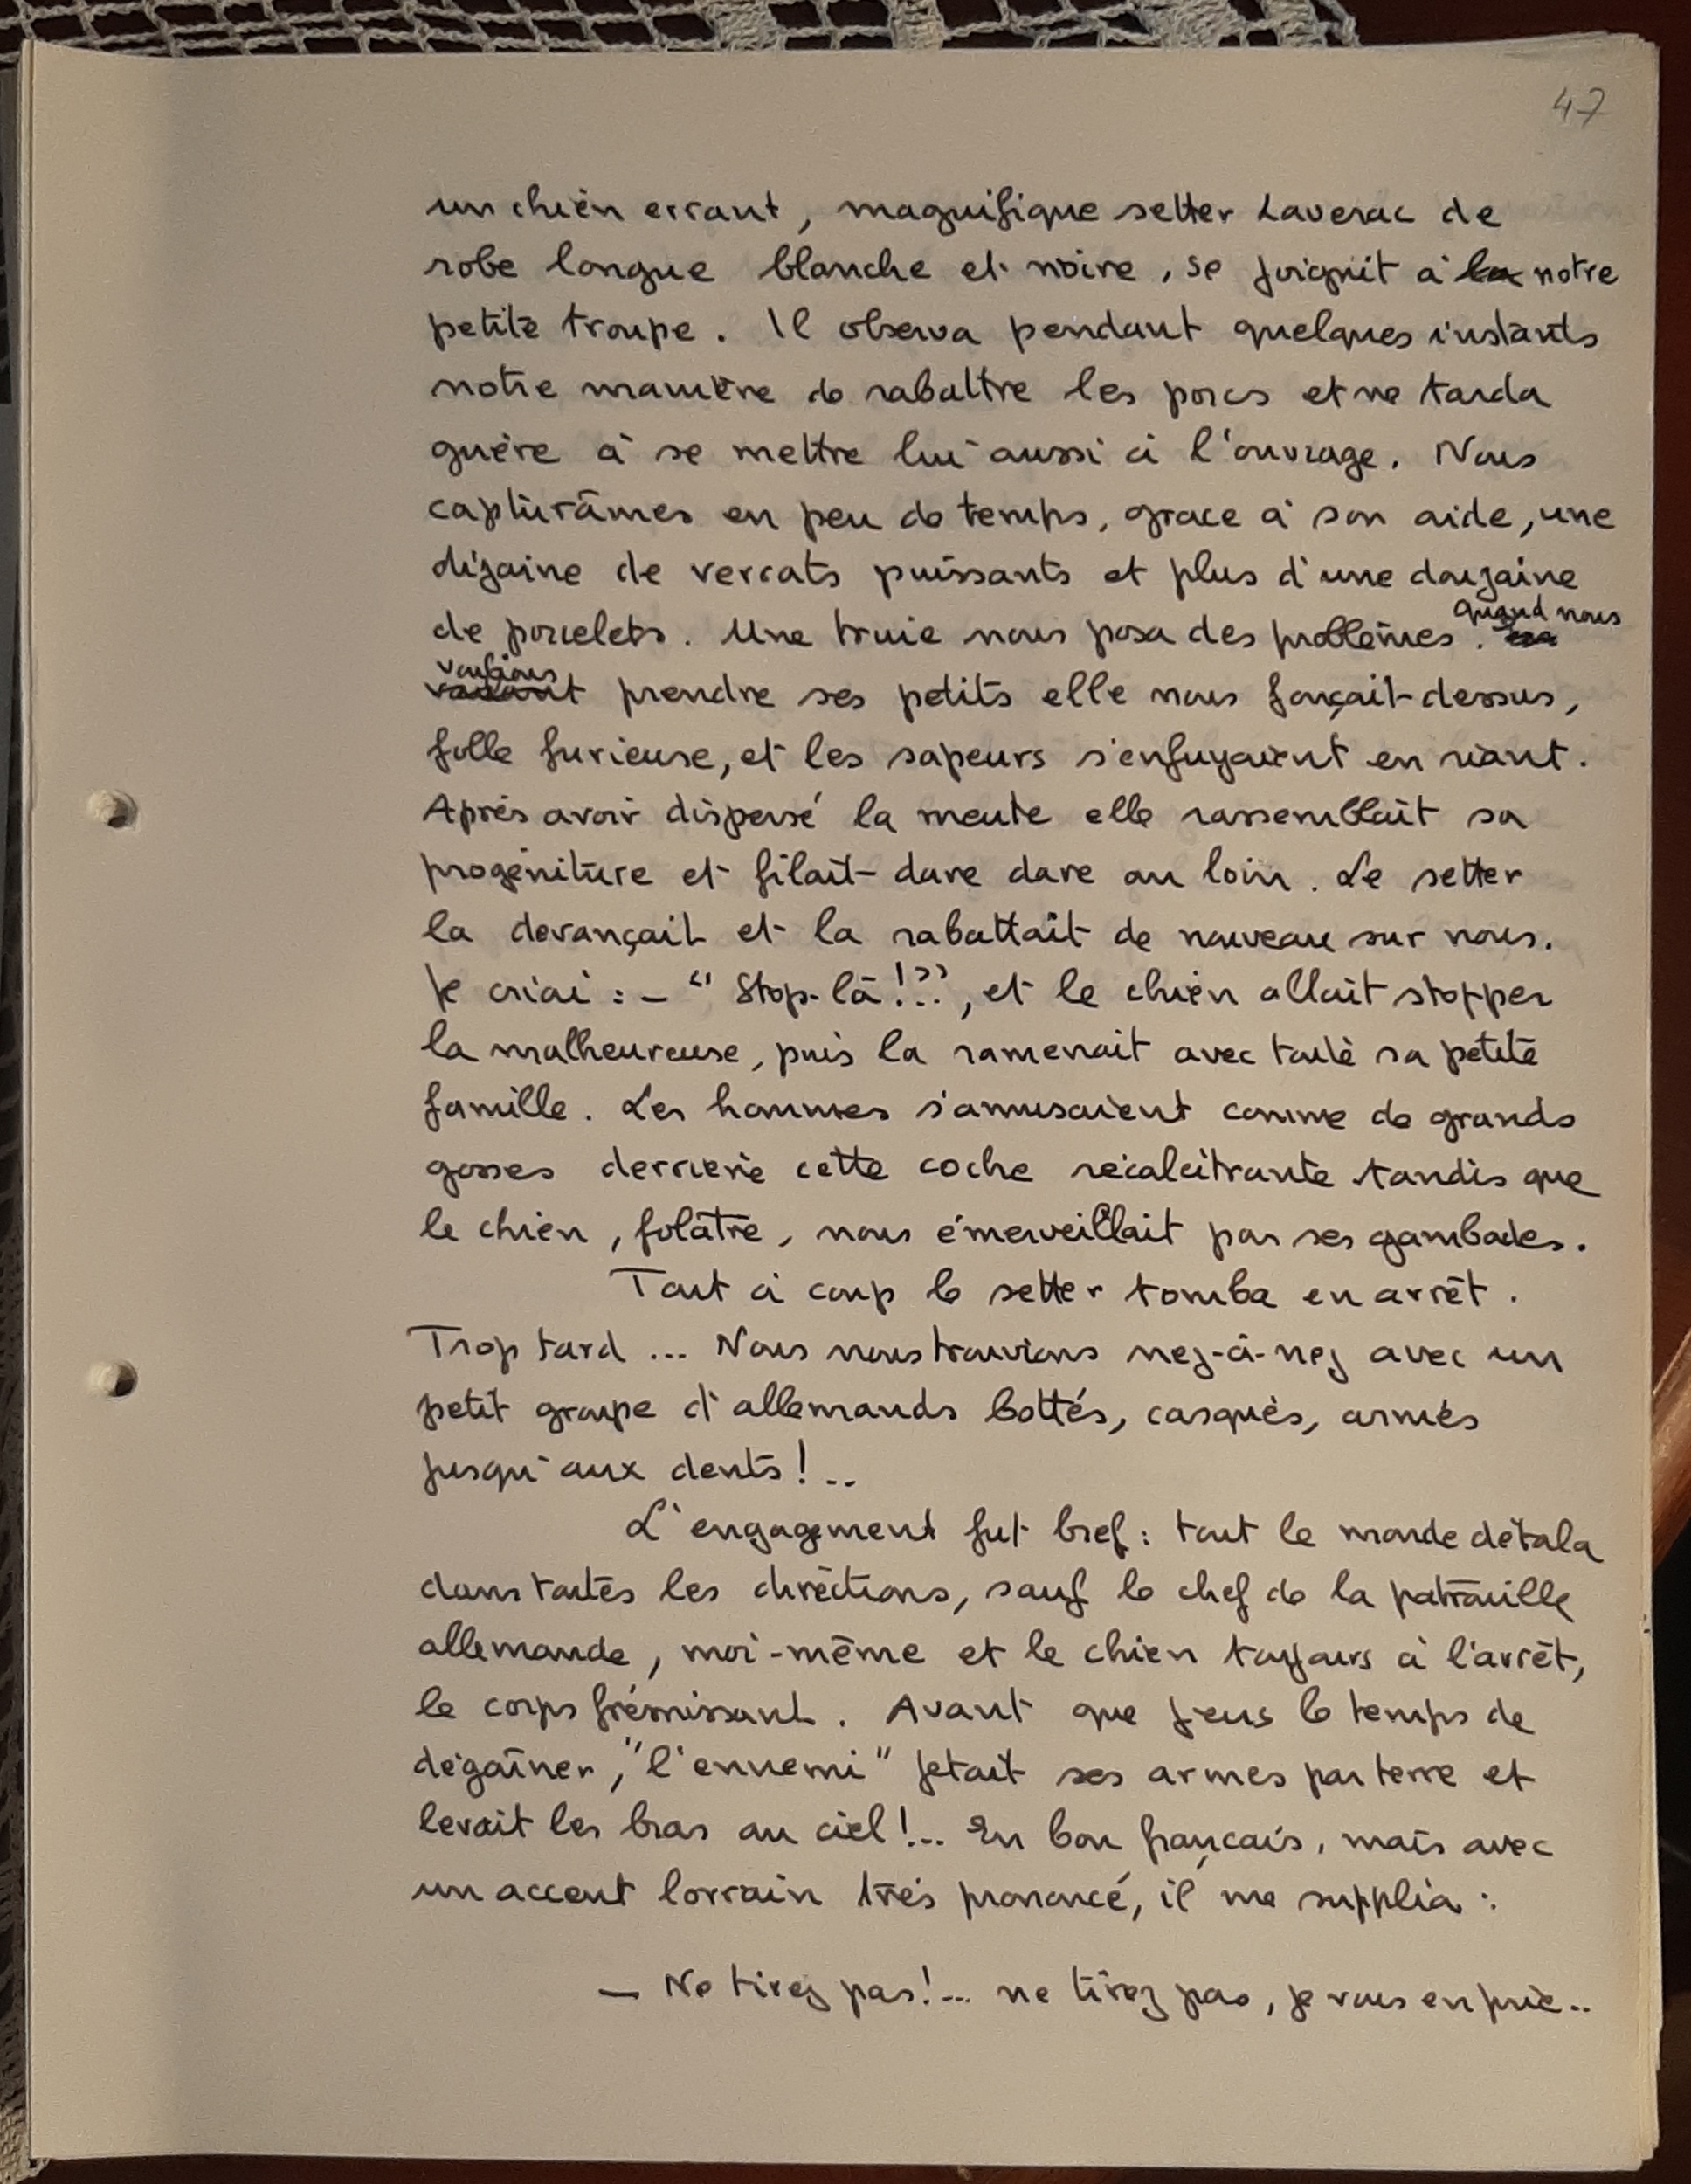 47
un chien errant, magnifique setter Laverac de
robe longue blanche et noire, se joignit à la notre
petite troupe. Il observa pendant quelques instants
notre manière de rabattre les porcs et ne tarda
guère à se mettre lui aussi à l'ouvrage. Nous
capturâmes en peu de temps, grace à son aide, une
dizaine de verrats puissants et plus d'une douzaine
de porcelets. Une truie nous posa des problèmes. Quand nous
voulions prendre ses petits elle nous fonçait dessus,
folle furieuse, et les sapeurs s'enfuyaient en riant.
Après avoir dispersé la meute elle rassemblait sa
progéniture et filait dare dare au loin. Le setter
la devançait et la rabattait de nouveau sur nous.
Je criai : - " Stop-là!.. ", et le chien allait stopper
la malheureuse, puis la ramenait avec toute sa petite
famille. Les hommes s'amusaient comme de grands
gosses derrière cette coche récalcitrante tandis que
le chien, folâtre, nous émerveillait par ses gambades.
Tout à coup le setter tomba en arrêt.
Trop tard ... Nous nous trouvions nez-à-nez avec un
petit groupe d'allemands bottés, casqués, armés
jusqu'aux dents!..
L'engagement fut bref : tout le monde détala
dans toutes les directions, sauf le chef de la patrouille
allemande, moi-même et le chien toujours à l'arrêt,
le corps frémissant. Avant que j'eus le temps de
dégaîner, "l'ennemi" jetait ses armes par terre et
levait les bras au ciel!... En bon français, mais avec
un accent lorrain très prononcé, il me supplia :
— Ne tirez pas!... ne tirez pas, je vous en prie..